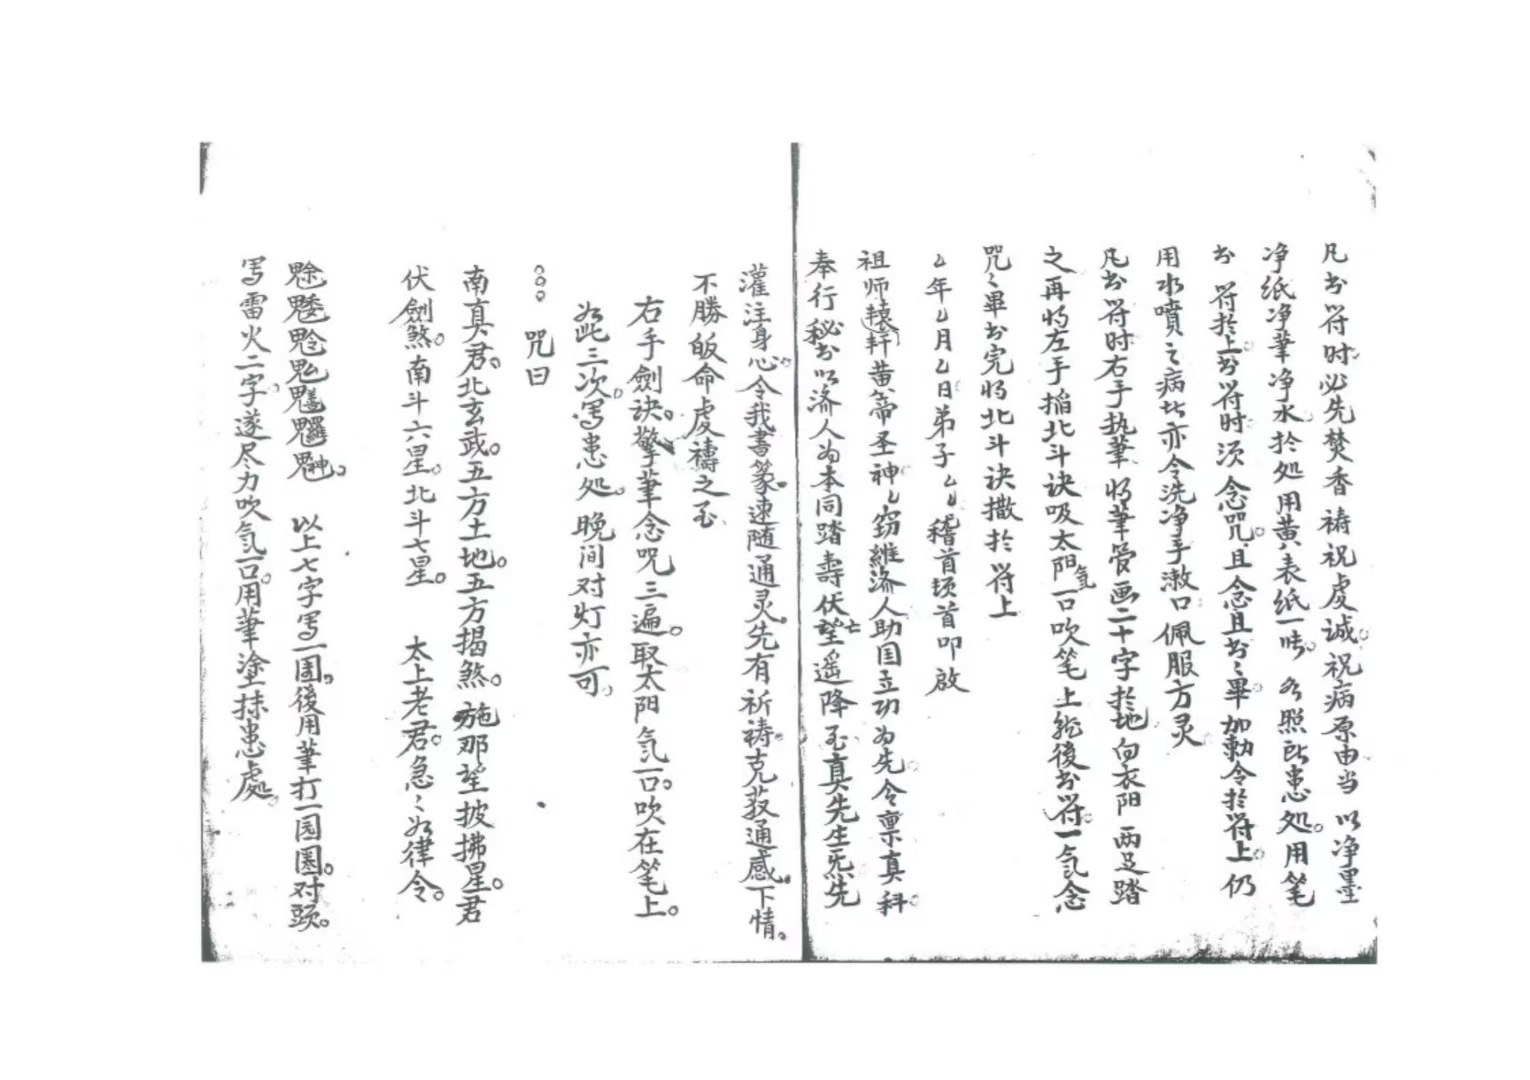 凡书符时必先焚香祷祝虔诚。祝病原由当以净墨
净纸净筆净水。於处用黄表纸一. 照此患处。用笔
书符於上。书符时须念咒。且念且书〻畢。加勅令於符上。仍
用水噴之病此亦令洗净手漱口佩服方灵
凡书符时右手执筆。将筆管画二十字於地向太阳两足踏
之再将左手掐北斗诀吸太阳氣一口吹笔上能後书符一氣念
咒〻畢书完将北斗诀撒於符上
厶年厶月厶日弟子厶厶稽首顿首叩啟
祖师轅轩黄帝圣神。窃維济人助国立功为先。今禀真科。
奉行秘书以济人为本同踏壽伏望遥降至真先生炁先
灌注身心。令我書篆。速随通灵。先有祈祷。克获通感。下情。
不勝皈命虔禱之至
右手劍诀。擎筆念咒三遍。取太阳氣一口。吹在笔上。
如此三次。写患处。晚间对灯亦可。
咒曰
南真君。北玄武。五方土地。五方揭煞。施那望披拂星。君
伏劍煞。南斗六星。北斗七星。 太上老君。急〻如律令。
以上七字写一圈。後用筆打一园圈。对頭。
写雷火二字。遂尽力吹氣一口。用筆塗抹患處。